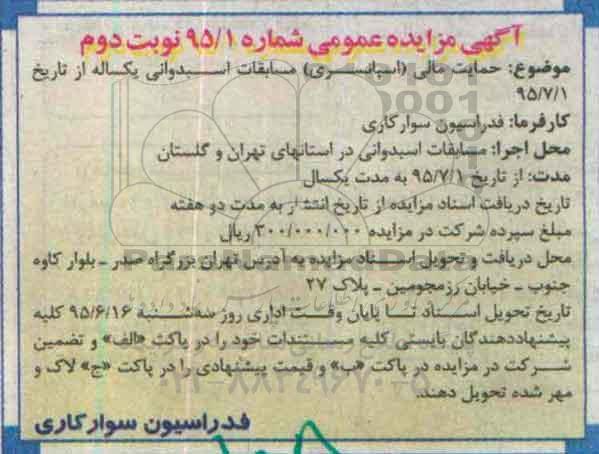 آگهی مزایده عمومی شماره ۹۵/۱ نوبت دوم
موضوع: حمایت مالی (اسپانسری) مسابقات اسبدوانی یکساله از تاریخ
۹۵/۷/۱
کارفرما: فدراسیون سوارکاری
محل اجرا: مسابقات اسبدوانی در استانهای تهران و گلستان
مدت: از تاریخ ۹۵/۷/۱ به مدت یکسال
تاریخ دریافت اسناد مزایده از تاریخ انتشار به مدت دو هفته
مبلغ سپرده شرکت در مزایده ۳۰۰/۰۰۰/۰۰۰ ریال
محل دریافت و تحویل اسناد مزایده به آدرس تهران بزرگراه صدر ـ بلوار کاوه
جنوب ـ خیابان رزمجومین ـ پلاک ۲۷
تاریخ تحویل اسناد تا پایان وقت اداری روز سه‌شنبه ۹۵/۶/۱۶ کلیه
پیشنهاددهندگان بایستی کلیه مستندات خود را در پاکت «الف» و تضمین
شرکت در مزایده در پاکت «ب» و قیمت پیشنهادی را در پاکت «ج» لاک و
مهر شده تحویل دهند.
فدراسیون سوارکاری
۰۲۱-۸۸۳۴۹۶۷۰-۵